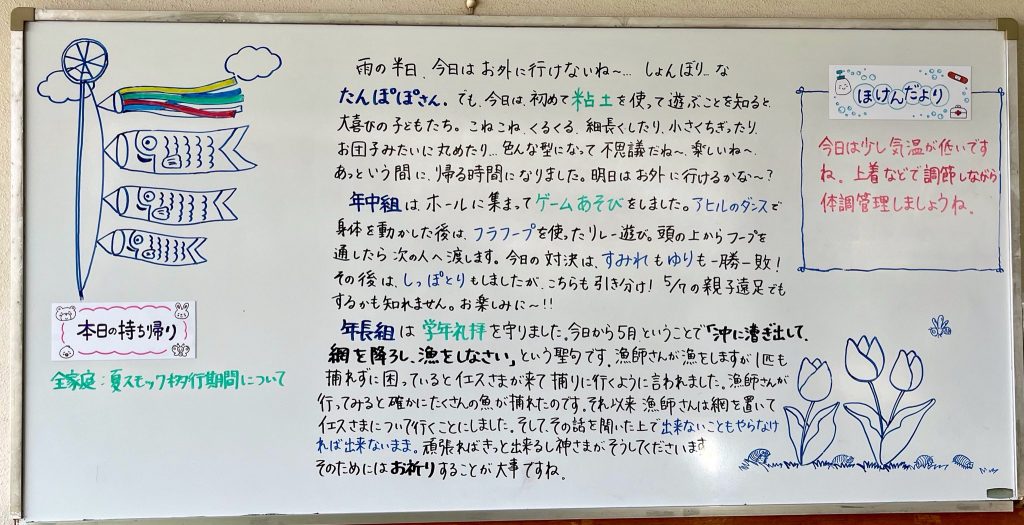 雨の半日、今日はお外に行けないね〜… しょんぼり…な
たんぽぽさん。でも、今日は、初めて粘土を使って遊ぶことを知ると、
大喜びの子どもたち。こねこね、くるくる、細長くしたり、小さくちぎったり、
お団子みたいに丸めたり…色んな型になって不思議だね〜、楽しいね〜、
あっという間に、帰る時間になりました。明日はお外に行けるかな〜?
年中組は、ホールに集まってゲームあそびをしました。アヒルのダンスで
身体を動かした後は、フラフープを使ったリレー遊び。頭の上からフープを
通したら次の人へ渡します。今日の対決は、すみれもゆりも一勝一敗!
その後は、しっぽとりもしましたが、こちらも引き分け! 5/7の親子遠足でも
するかも知れません。お楽しみに〜!!
年長組は学年礼拝を守りました。今日から5月ということで「沖に漕ぎ出して、
網を降ろし、漁をしなさい」という聖句です。漁師さんが漁をしますが1匹も
捕れずに困っているとイエスさまが来て捕りに行くように言われました。漁師さんが
行ってみると確かにたくさんの魚が捕れたのです。それ以来漁師さんは網を置いて
イエスさまについて行くことにしました。そして、その話を聞いた上で出来ないこともやらなけ
れば出来ないまま。頑張ればきっと出来るし神さまがそうしてくださいます
そのためにはお祈りすることが大事ですね。
本日の持ち帰り
全家庭:夏スモック移行期間について
ほけんだより
今日は少し気温が低いです
ね。上着などで調節しながら
体調管理しましょうね。